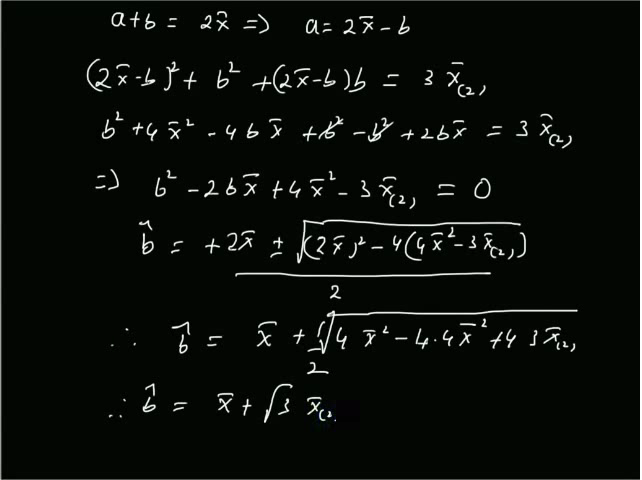 a+b = 2x̄ => a = 2x̄-b
(2x̄-b)² + b² + (2x̄-b)b = 3x̄₍₂₎
b² + 4x̄² - 4bx̄ + b² - b² + 2bx̄ = 3x̄₍₂₎
=> b² - 2bx̄ + 4x̄² - 3x̄₍₂₎ = 0
b̂ = +2x̄ ± √(2x̄)² - 4(4x̄² - 3x̄₍₂₎)
2
∴ b̂ = x̄ + 1/2 √4x̄² - 4·4x̄² + 4 3x̄₍₂₎
∴ b̂ = x̄ + √3 x̄₍₂